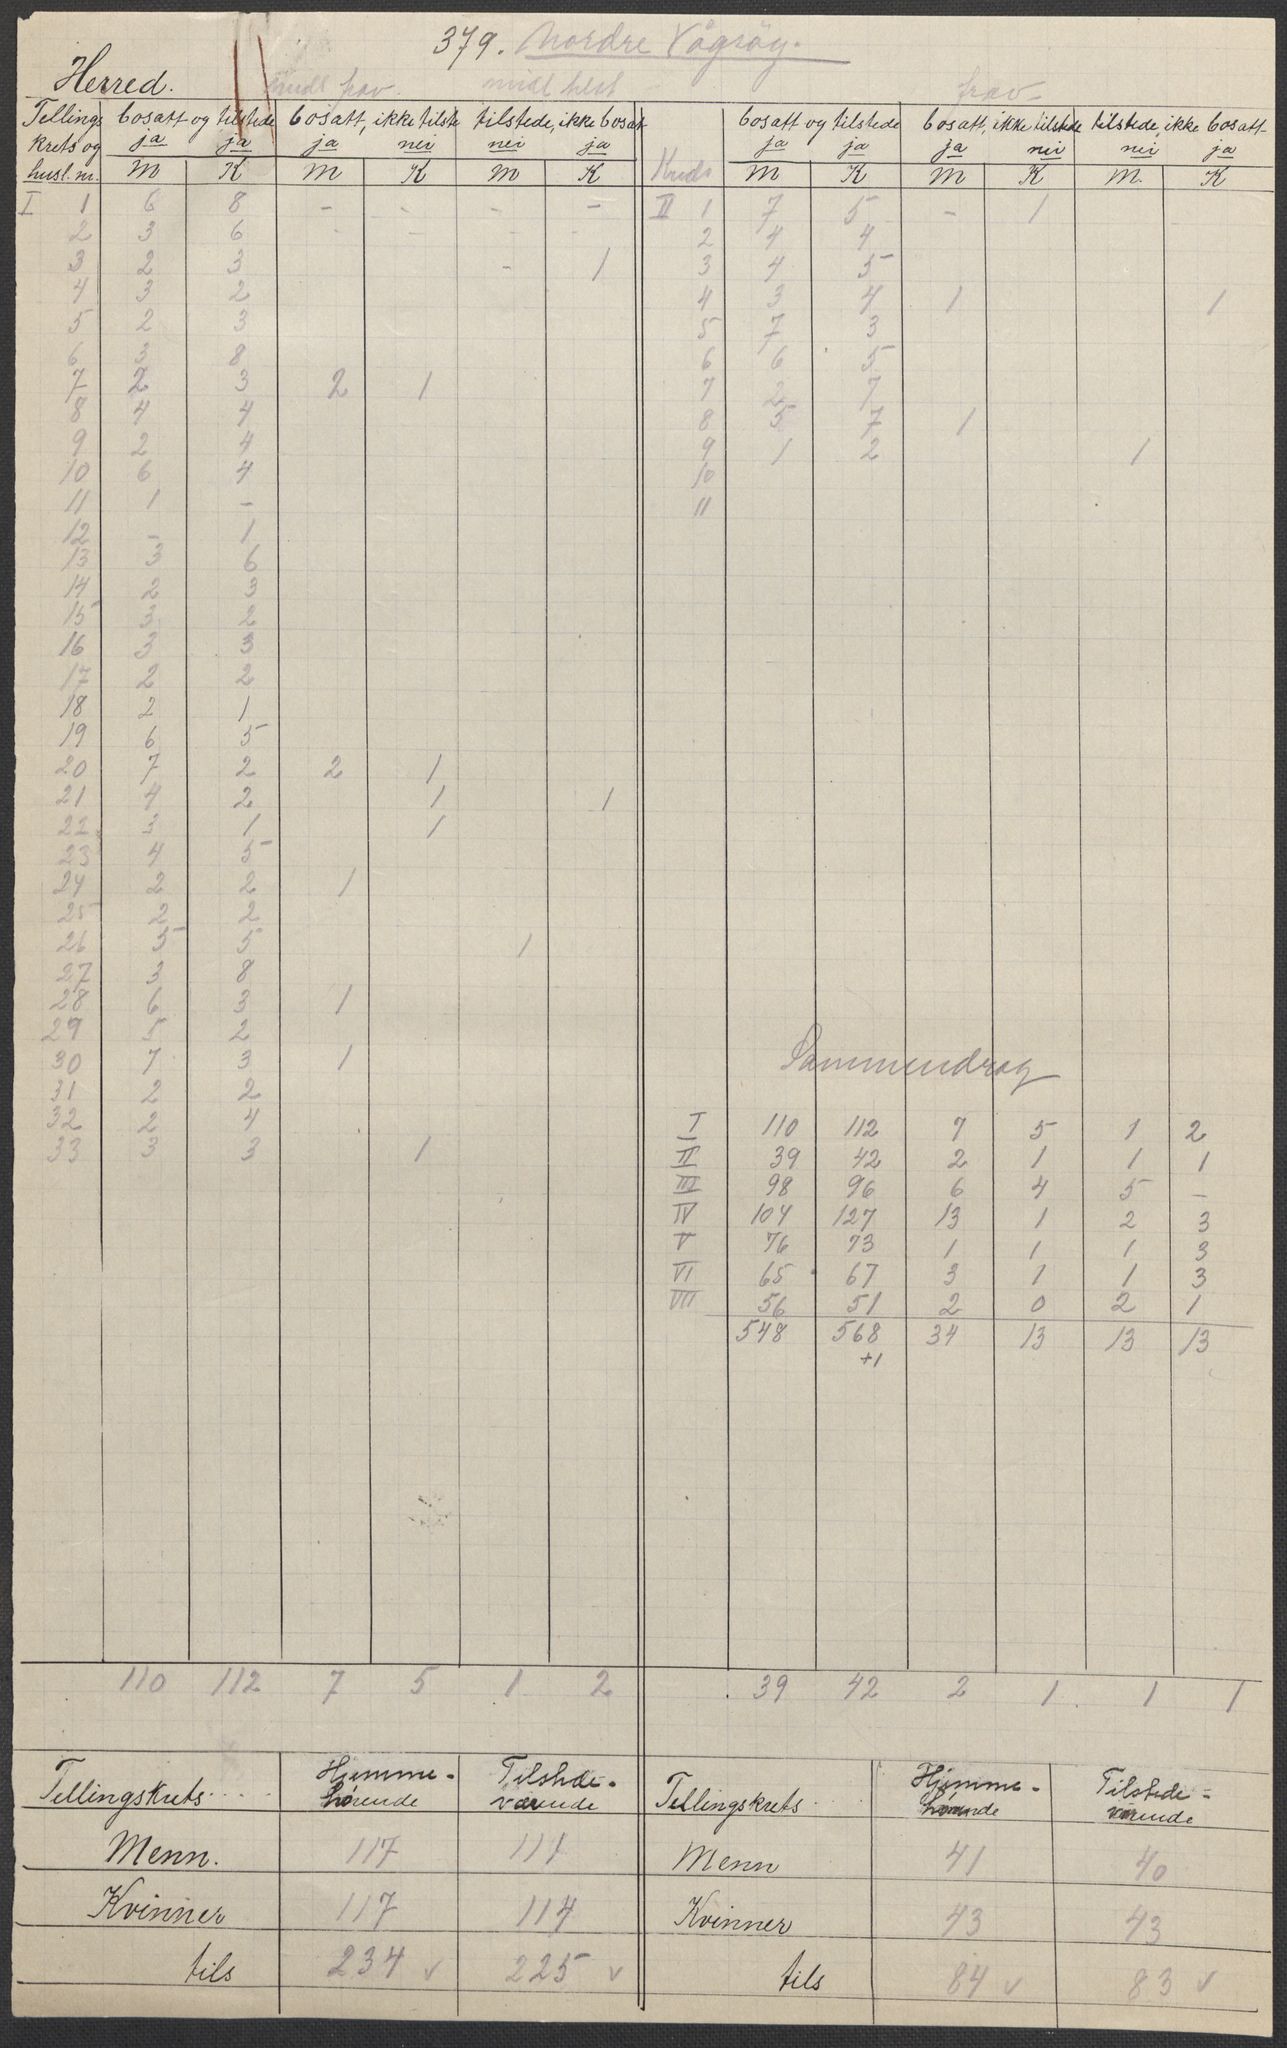 379. Nordre Vågsöy.
Herred. midl frav. midl tilst frav.
Tellings bosatt og tilstede bosatt, ikke tilste tilstede, ikke bosat bosatt og tilstede bosatt, ikke tilstede tilstede, ikke bosatt
krets og ja ja ja nei nei ja ja ja ja nei nei ja
husl. nr. M K M K M K Kreds M K M K M. K
I 1 6 8 - - - II 1 7 5 - 1
2 3 6 - - - - 2 4 4
3 2 3 - 1 3 4 5
4 3 2 4 3 4 1 1
5 2 3 5 7 3
6 3 8 6 6 5
7 2 3 2 1 7 2 7
8 4 4 8 5 7 1
9 2 4 9 1 2 1
10 6 4 10
11 1 - 11
12 - 1
13 3 6
14 2 3
15 3 2
16 3 3
17 2 2
18 2 1
19 6 5
20 7 2 2 1
21 4 2 1 1
22 3 1 1
23 4 5
24 2 2 1
25 2 2
26 5 5 1
27 3 8
28 6 3 1
29 5 2
30 7 3 1
31 2 2
32 2 4
33 3 3 1
Sammendrag
I 110 112 7 5 1 2
II 39 42 2 1 1 1
III 98 96 6 4 5 -
IV 104 127 13 1 2 3
V 76 73 1 1 1 3
VI 65 67 3 1 1 3
VII 56 51 2 0 2 1
548 568 34 13 13 13
+1
110 112 7 5 1 2 39 42 2 1 1 1
Tellingskrets Hjemme- Tilstede- Tellingskrets Hjemme- Tilstede-
hørende værende hørende værende
Menn. 117 111 Menn 41 40
Kvinner 117 114 Kvinner 43 43
tils 234 v 225 v tils 84 v 83 v